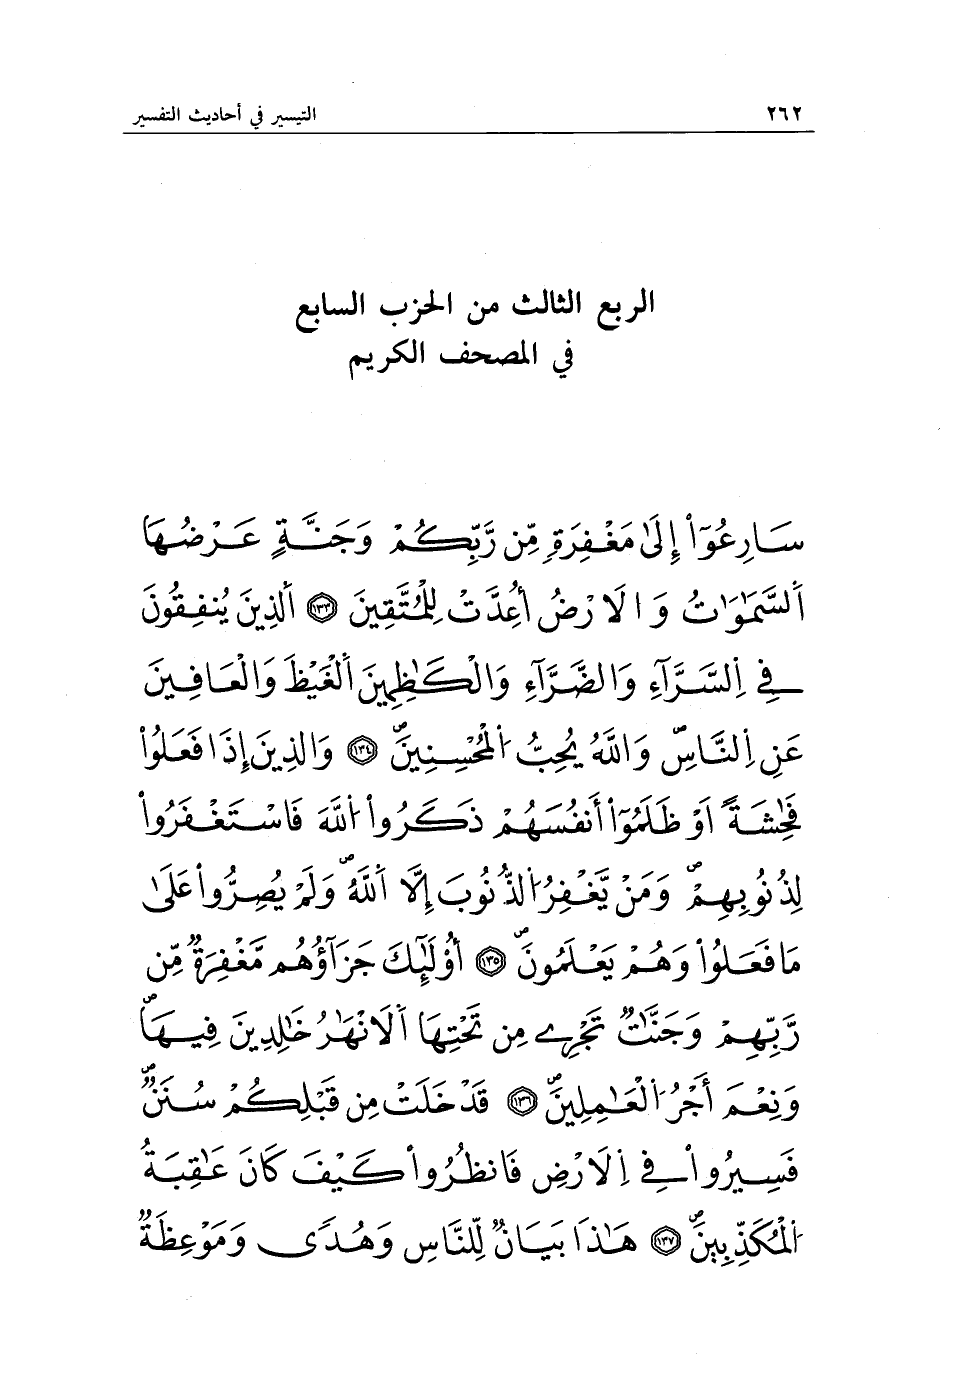 ٢٦٢ التيسير في أحاديث التفسير
الربع الثالث من الحزب السابع
في المصحف الكريم
سَارِعُوٓاْ إِلَىٰ مَغْفِرَةٍ مِّن رَّبِّكُمْ وَجَنَّةٍ عَرْضُهَا
اَ۬لسَّمَٰوَٰتُ وَالَارْضُ أُعِدَّتْ لِلْمُتَّقِينَ ١٣٣ اَ۬لذِينَ يُنفِقُونَ
فِے اِ۬لسَّرَّآءِ وَالضَّرَّآءِ وَالْكَٰظِمِينَ اَ۬لْغَيْظَ وَالْعَافِينَ
عَنِ اِ۬لنَّاسِۖ وَاللَّهُ يُحِبُّ اُ۬لْمُحْسِنِينَۖ ١٣٤ وَالذِينَ إِذَا فَعَلُواْ
فَٰحِشَةً اَوْ ظَلَمُوٓاْ أَنفُسَهُمْ ذَكَرُواْ اُ۬للَّهَ فَاسْتَغْفَرُواْ
لِذُنُوبِهِمْۖ وَمَنْ يَّغْفِرُ اُ۬لذُّنُوبَ إِلَّا اَ۬للَّهُۖ وَلَمْ يُصِرُّواْ عَلَىٰ
مَا فَعَلُواْ وَهُمْ يَعْلَمُونَۖ ١٣٥ أُوْلَٰٓئِكَ جَزَآؤُهُم مَّغْفِرَةٌ مِّن
رَّبِّهِمْ وَجَنَّٰتٌ تَجْرِے مِن تَحْتِهَا اَ۬لَانْهَٰرُ خَٰلِدِينَ فِيهَاۖ
وَنِعْمَ أَجْرُ اُ۬لْعَٰمِلِينَۖ ١٣٦ قَدْ خَلَتْ مِن قَبْلِكُمْ سُنَنٌۖ
فَسِيرُواْ فِے اِ۬لَارْضِ فَانظُرُواْ كَيْفَ كَانَ عَٰقِبَةُ
اُ۬لْمُكَذِّبِينَۖ ١٣٧ هَٰذَا بَيَانٌ لِّلنَّاسِ وَهُدًى وَمَوْعِظَةٌ